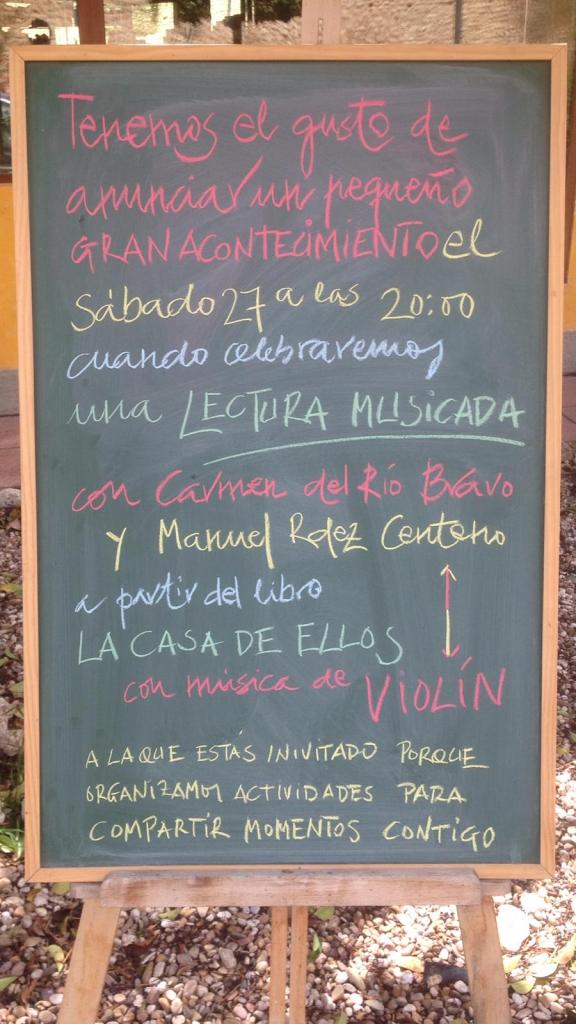 Tenemos el gusto de
anunciar un pequeño
GRAN ACONTECIMIENTO el
Sábado 27 a las 20:00
cuando celebraremos
una LECTURA MUSICADA
con Carmen del Río Bravo
y Manuel Rdez Centeno
a partir del libro
LA CASA DE ELLOS
con música de VIOLÍN
A LA QUE ESTÁS INIVITADO PORQUE
ORGANIZAMOS ACTIVIDADES PARA
COMPARTIR MOMENTOS CONTIGO